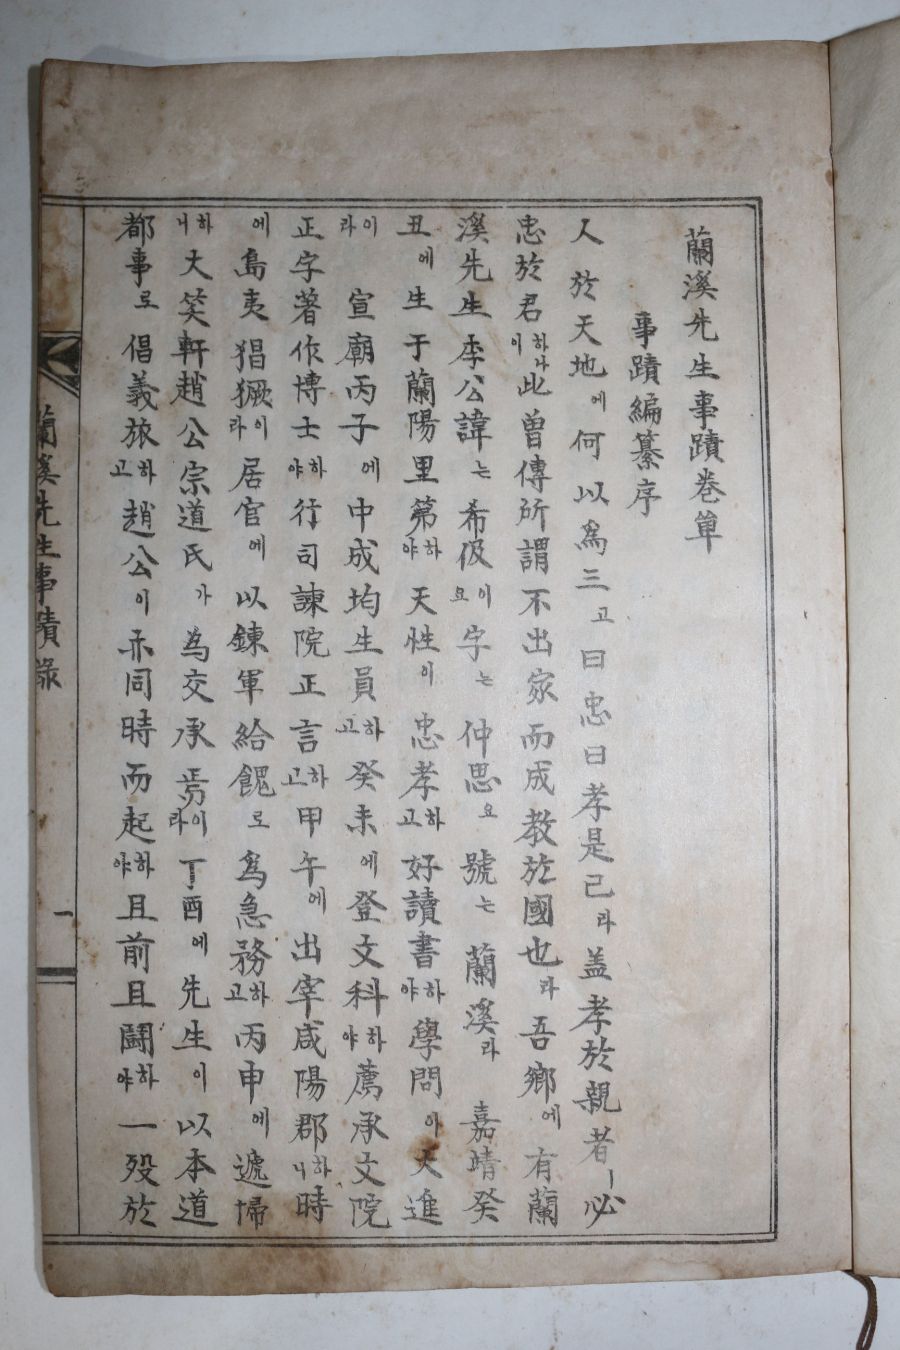 蘭溪先生事蹟卷單
事蹟編纂序
人於天地에何以爲三고曰忠曰孝是已라盖孝於親者ㅣ必
忠於君하나이此曾傳所謂不出家而成教於國也라吾鄉에有蘭
溪先生李公諱는希伋이요字는仲思요號는蘭溪라 嘉靖癸
丑에生于蘭陽里第하야天性이忠孝하고好讀書하야學問아大進
이라 宣廟丙子에中成均生員하고癸未에登文科하야薦承文院
正字著作博士하야行司諫院正言하고甲午에出宰咸陽郡하니時
에島夷猖獗이라居官에以鍊軍給餽로爲急務하고丙申에遞歸
하니大笑軒趙公宗道氏가爲交承焉이라丁酉에先生이以本道
都事로倡義旅하고趙公이亦同時而起하야且前且鬪하야一歿於
蘭溪先生事蹟錄
一